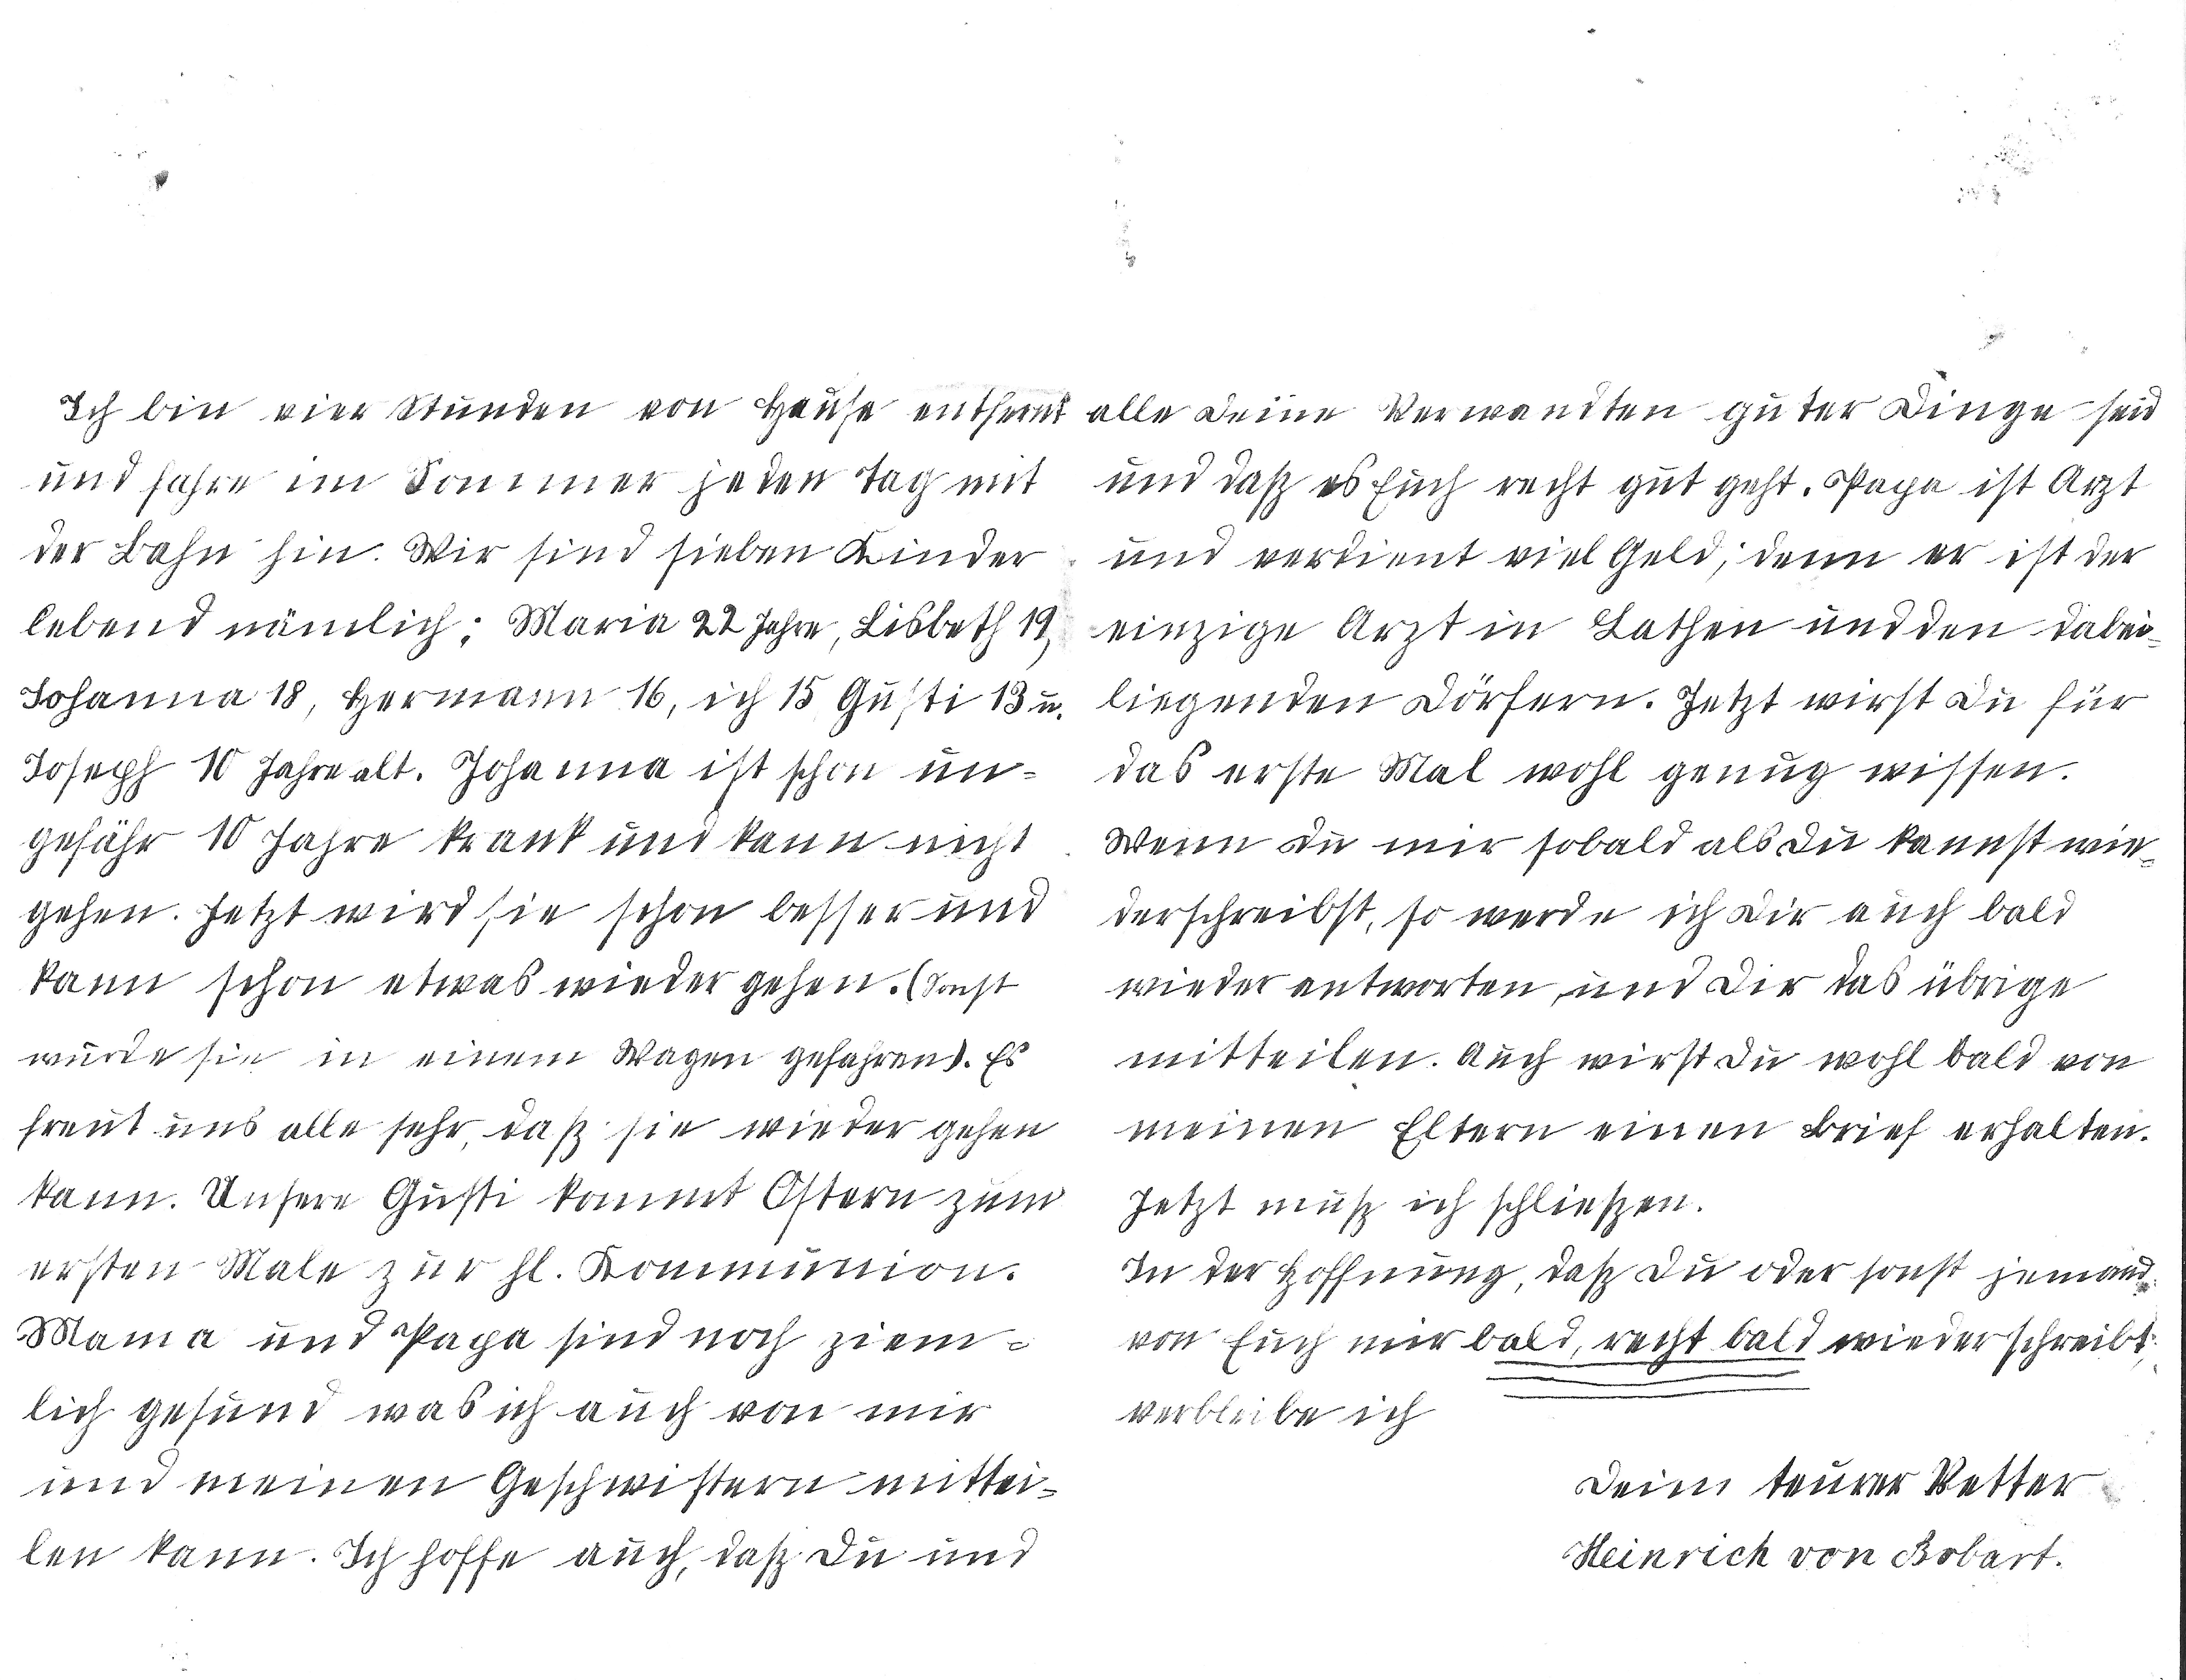 Ich bin vier Stunden von Hause entfernt
und fahre im Sommer jeden Tag mit
der Bahn hin. Wir sind sieben Kinder
lebend nämlich: Maria 22 Jahre, Lisbeth 19,
Johanna 18, Hermann 16, ich 15 Gusti 13 u.
Joseph 10 Jahre alt. Johanna ist schon un-
gefähr 10 Jahre krank und kann nicht
gehen. Jetzt wird sie schon besser und
kann schon etwas wieder gehen. (Sonst
wurde sie in einem Wagen gefahren). Es
freut uns alle sehr, daß sie wieder gehen
kann. Unsere Gusti kommt Ostern zum
ersten Male zur hl. Kommunion.
Mama und Papa sind noch ziem-
lich gesund was ich auch von mir
und meinen Geschwistern mittei-
len kann. Ich hoffe auch, daß Du und
alle Deine Verwandten guter Dinge seid
und daß es Euch recht gut geht. Papa ist Arzt
und verdient viel Geld; denn er ist der
einzige Arzt in Lathen und den dabei-
liegenden Dörfern. Jetzt wirst Du für
das erste Mal wohl genug wissen.
Wenn Du mir sobald als Du kannst wie-
derschreibst, so werde ich Dir auch bald
wieder antworten, und Dir das übrige
mitteilen. Auch wirst Du wohl bald von
meinen Eltern einen Brief erhalten.
Jetzt muß ich schließen.
In der Hoffnung, daß Du oder sonst jemand
von Euch mir bald, recht bald wieder schreibt,
verbleibe ich
Dein teurer Vetter
Heinrich von Bobart.